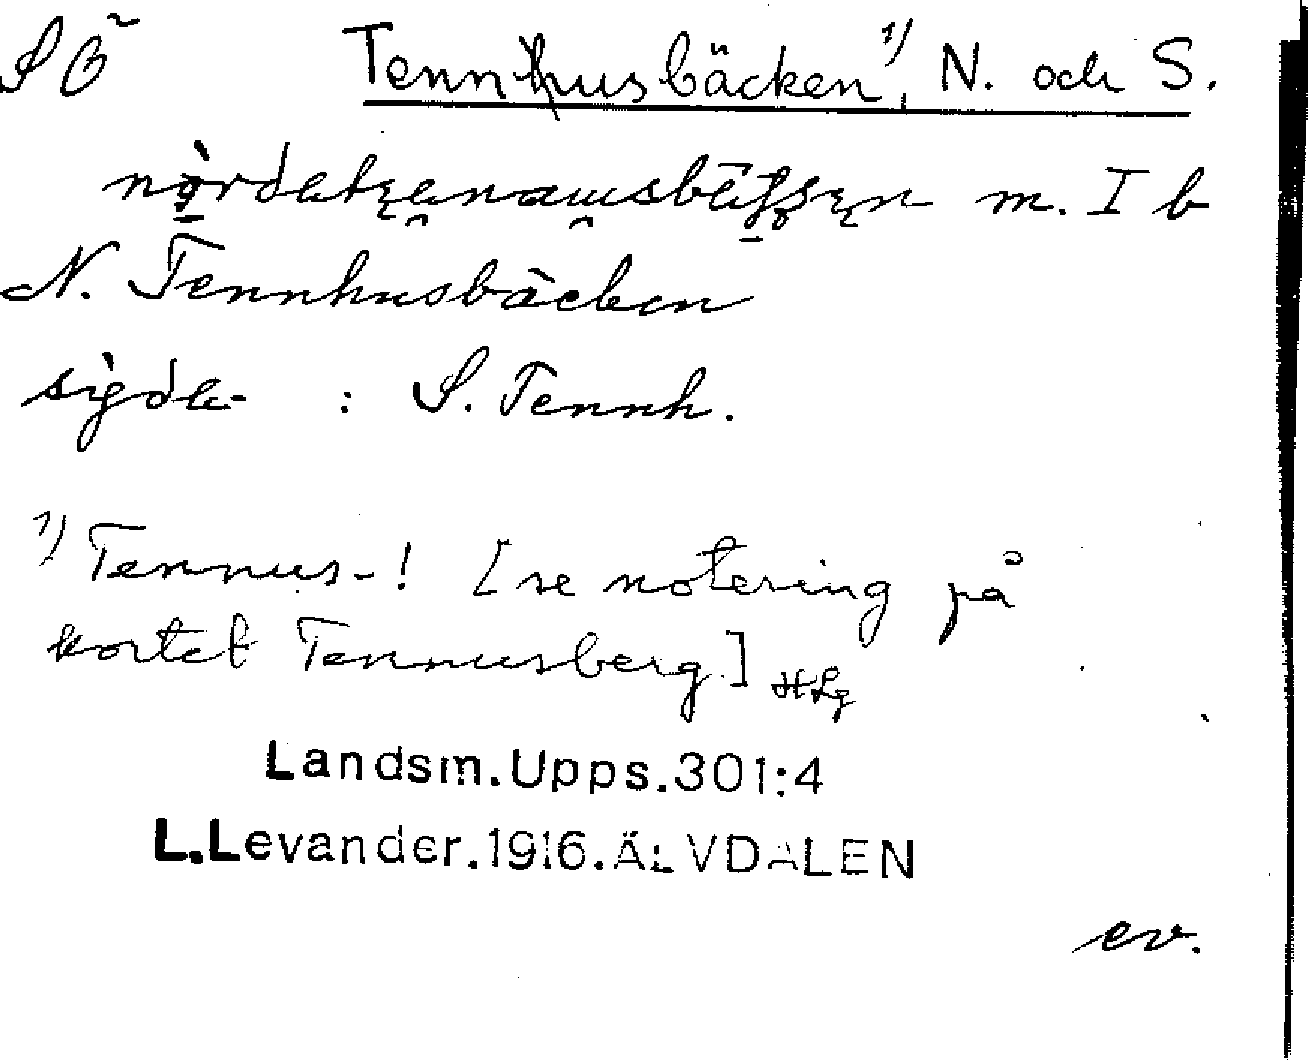 Tennhusbäcken 1), N. och S.
m. I b
N. Tennhusbäcken
: S. Tennh.
1) Tennus-! [se notering på
kortet Tennusberg.]
Landsm.Upps.301:4
L.Levander.1916.ÄLVDALEN
ev.